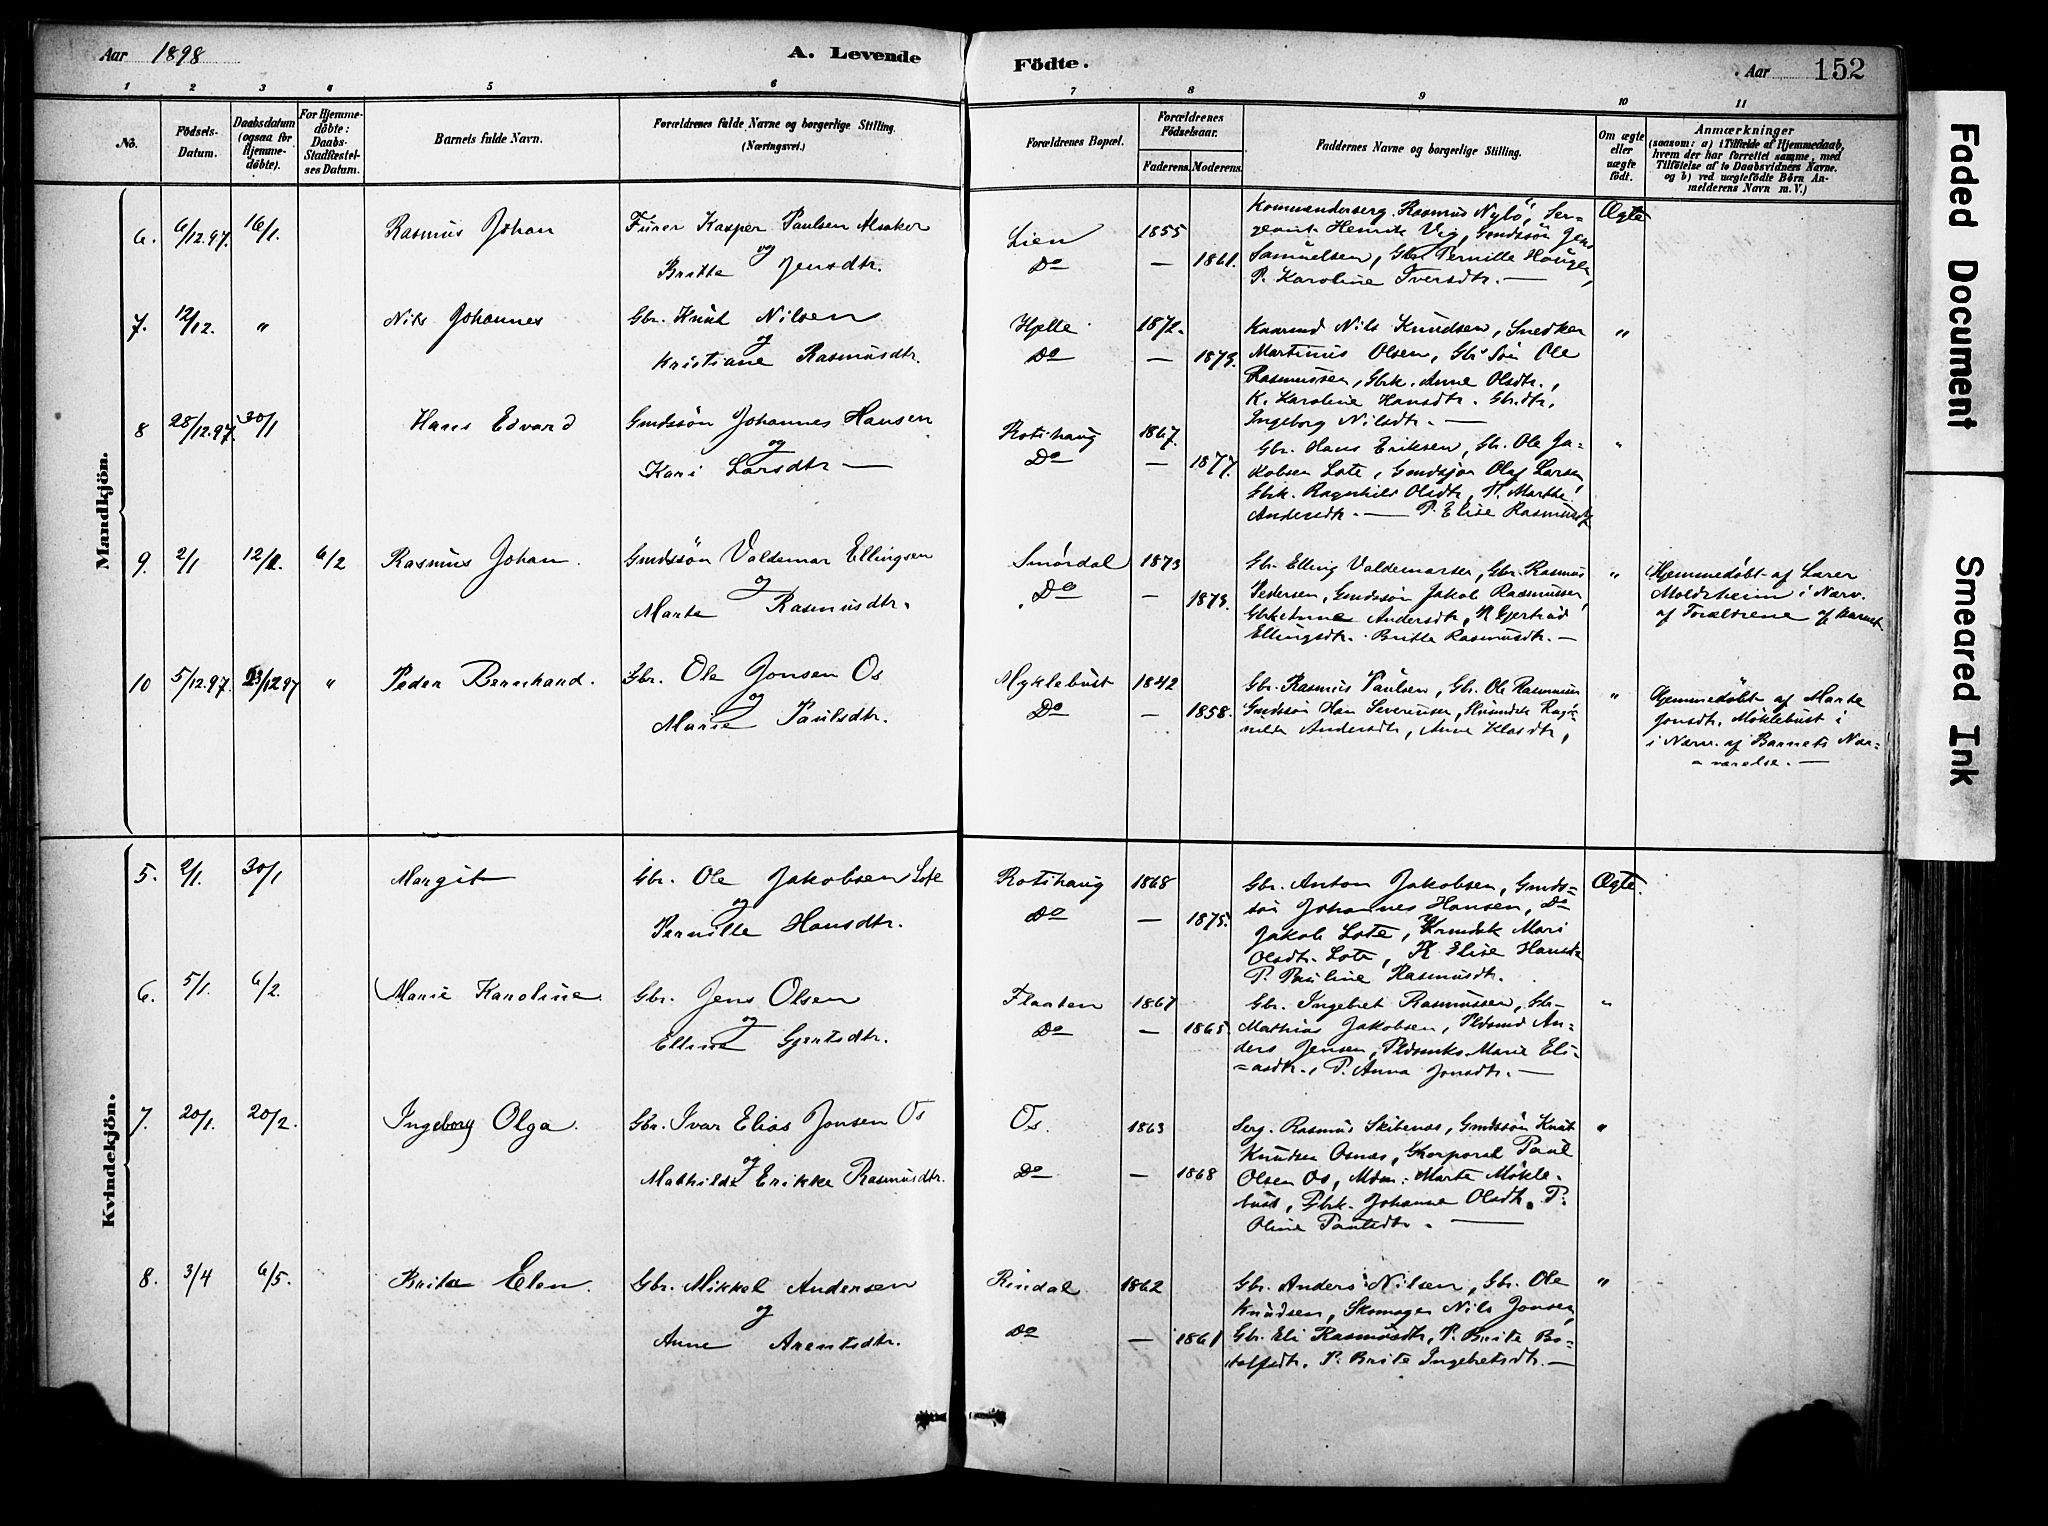 Aar 1898 A. Levende Födte. Aar 152
1 2 3 4 5 6 7 8 9 10 11
No.
Födsels-Datum.
Daabsdatum (ogsaa for Hjemmedöbte).
For Hjemmedöbte: Daabs-Stadfæstelses Datum.
Barnets fulde Navn.
Forældrenes fulde Navne og borgerlige Stilling. (Næringsvei.)
Forældrenes Bopæl.
Forældrenes Födselsaar.
Faderens. Moderens.
Faddernes Navne og borgerlige Stilling.
Om ægte eller uægte födt.
Anmærkninger
(saasom: a) i Tilfælde af Hjemmedaab,
hvem der har forrettet samme, med
Tilföielse af to Daabsvidners Navne.
og b) ved uægtefödte Börn Anmelderens Navn m. V.)
Mandkjön.
6. 6/12.97. 16/1. Rasmus Johan
Furer Kasper Paulsen Alsaker
og
Britte Jensdtr.
Lien 1855
Do — 1861.
Kommanderserg. Rasmus Nybö, Ser-
geant Henrik Vig, Gmdssön Jens
Samuelsen, Gbr. Pernille Haugen,
P. Karoline Iversdtr. —
Ægte
7. 12/12. " Nils Johannes
Gbr. Knut Nilsen
og
Kristiane Rasmusdtr.
Hjelle 1872.
Do — 1873.
Kaarmd Nils Knudsen, Snedker
Martinus Olsen, Gbr. Sön Ole
Rasmussen, Gbrk. Anne Olsdtr.,
K. Karoline Hansdtr. Gbr.dtr.
Ingeborg Nilsdtr. —
"
8 28/12.97. 30/1 Hans Edvard
Gmdssön Johannes Hansen
og
Kari Larsdtr —
Rotihaug 1867.
Do — 1877.
Gbr. Hans Eriksen, Gbr. Ole Ja-
kobsen Lote, Gmdssön Olaf Larsen,
Gbrk. Ragnhild Olsdtr, P. Marthe
Andersdtr. — P. Elise Rasmusdtr
"
9. 2/1 12/1. 6/2 Rasmus Johan.
Gmdssön Valdemar Ellingsen
og
Marta Rasmusdtr.
Smördal 1873
Do — 1873.
Gbr. Elling Valdemarsen, Gbr. Rasmus
Pedersen, Gmdssön Jakob Rasmussen,
Gbrk Anne Andersdtr, K Gjertrud
Ellingsdtr. Britte Rasmusdtr. —
"
Hjemmedöbt af Lærer
Moldsheim i Nærv.
af Forældrene af Barnet.
10 5/12.97. 23/12 97 " Peder Bernhard.
Gbr. Ole Jonsen Os
og
Marie Paulsdtr.
Myklebust 1842
Do — 1858.
Gbr. Rasmus Paulsen, Gbr. Ole Rasmussen
Gmdssön Hans Severinsen, Husmdsk Rag-
nilda Andersdtr, Anne Klasdtr,
"
Hjemmedöbt af Marte
Jonsdtr. Möklebust i
i Nærv. af Barnets Nær-
-værelse. —
Kvindekjön.
5. 2/1. 30/1 Margit
Gbr. Ole Jakobsen Lote
og
Pernille Hansdtr.
Rotihaug 1868
Do — 1875.
Gbr. Anton Jakobsen, Gmds-
sön Johannes Hansen, Do
Jakob Lote, Kmdsk Mari
Olsdtr. Lote, K Elise Hansdtr
P. Pauline Rasmusdtr.
Ægte.
6. 5/1. 6/2. Marie Karoline
Gbr. Jens Olsen
og
Elline Gjertsdtr.
Flaaten 1867
Do — 1865.
Gbr. Ingebret Rasmussen, Gbr.
Mathias Jakobsen, Pldsmd An-
ders Jensen, Pldsmks. Marie Eli-
=asdtr., P. Anna Jonsdtr. —
"
7. 20/1. 20/2. Ingeborg Olga.
Gbr. Ivar Elias Jonsen Os
og
Mathilde Erikke Rasmusdtr.
Os. 1863
Do — 1868
Serg. Rasmus Skibenes, Gmdssön Knut
Knudsen Osnæs, Korporal Paul
Olsen Os, Mdm. Marta Mökle-
bust, Gbrk. Johanne Olsdtr. P.
Oline Paulsdtr. —
"
8. 3/4 6/5. Brita Elen.
Gbr. Mikkel Andersen
og
Anne Arentsdtr.
Rindal 1862
Do — 1861
Gbr. Anders Nilsen, Gbr. Ole
Knudsen, Skomager Nils Jonsen,
Gbr. Eli Rasmusdtr, P. Brite Bo-
talfsdtr. P. Brite Ingebretsdtr. —
"
Faded Document
Smeared Ink